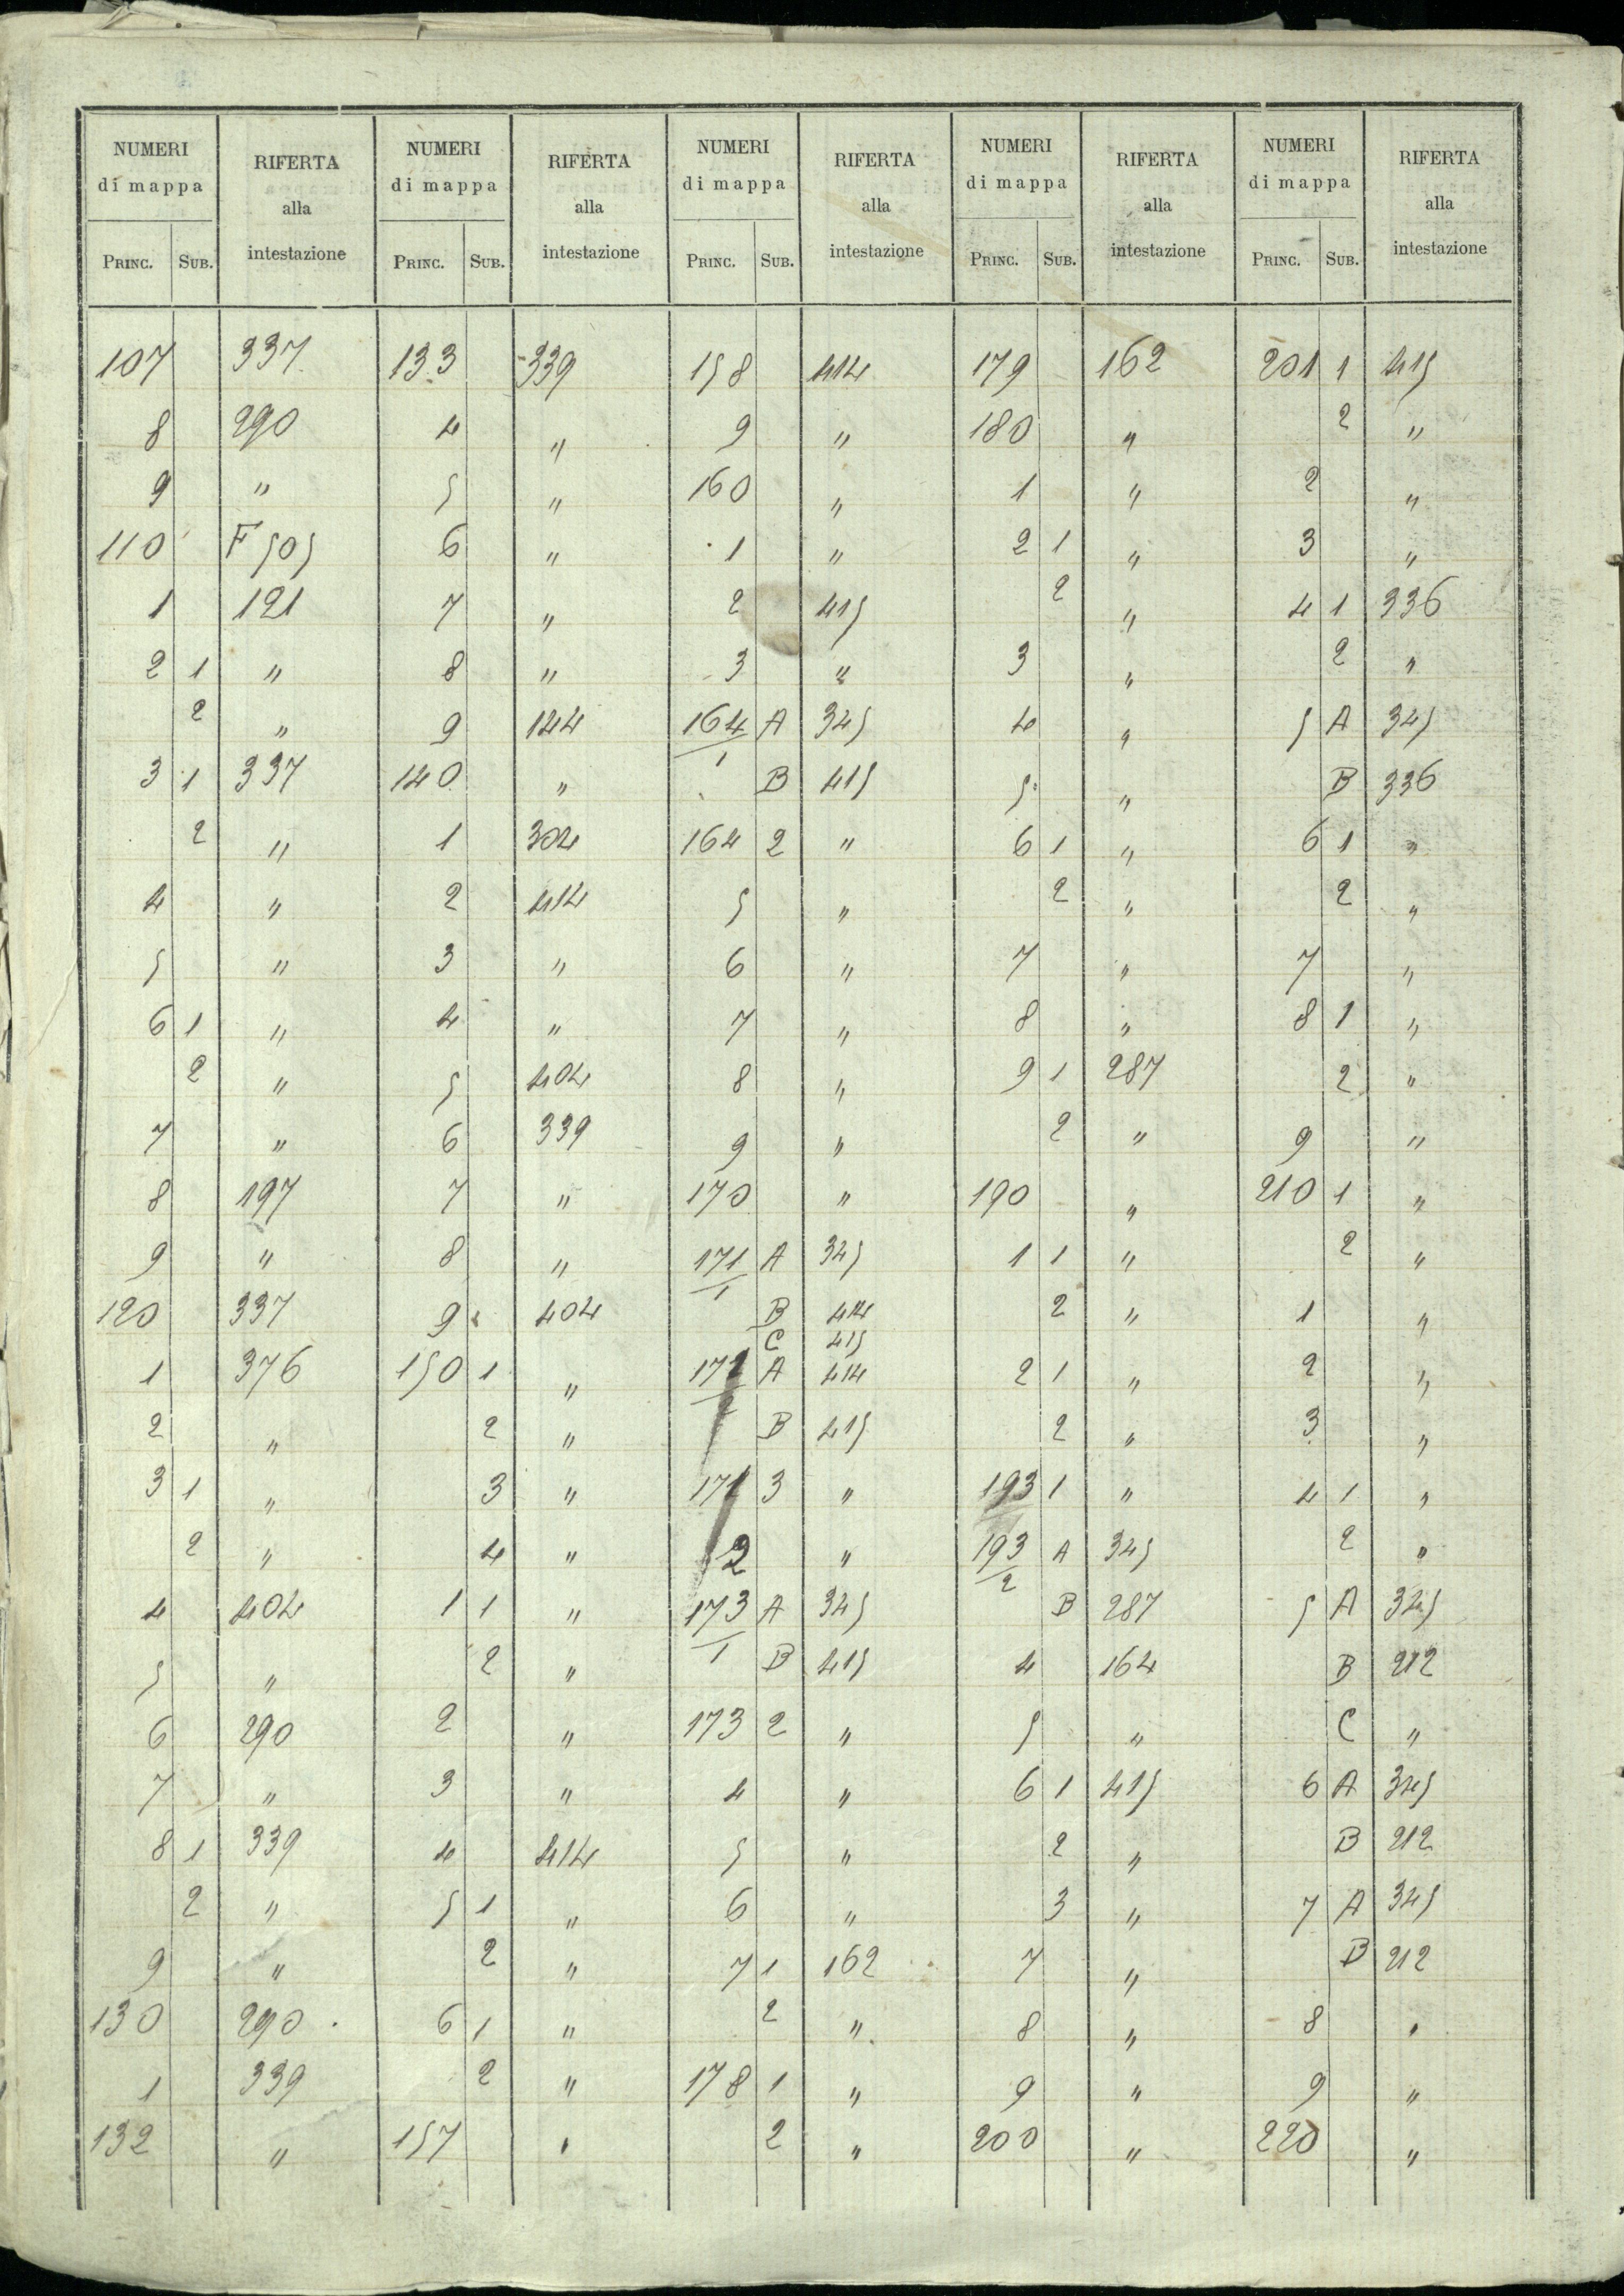 NUMERI di mappa | RIFERTA alla intestazione | NUMERI di mappa | RIFERTA alla intestazione | NUMERI di mappa | RIFERTA alla intestazione | NUMERI di mappa | RIFERTA alla intestazione | NUMERI di mappa | RIFERTA alla intestazione
PRINC. | SUB. | | PRINC. | SUB. | | PRINC. | SUB. | | PRINC. | SUB. | | PRINC. | SUB. |
107 | | 337 | 133 | | 339 | 158 | | 414 | 179 | | 162 | 201 | 1 | 415
8 | | 290 | 4 | | " | 9 | | " | 180 | | " | | 2 | "
9 | | " | 5 | | " | 160 | | " | 1 | | " | 2 | | "
110 | | F 505 | 6 | | " | 1 | | " | 2 | 1 | " | 3 | | "
1 | | 121 | 7 | | " | 2 | | 415 | | 2 | " | 4 | 1 | 336
2 | 1 | " | 8 | | " | 3 | | " | 3 | | " | | 2 | "
| 2 | " | 9 | | 144 | 164/1 | A | 345 | 4 | | " | 5 | A | 345
3 | 1 | 337 | 140 | | " | | B | 415 | 5 | | " | | B | 336
| 2 | " | 1 | | 304 | 164 | 2 | " | 6 | 1 | " | 6 | 1 | "
4 | | " | 2 | | 414 | 5 | | " | | 2 | " | | 2 | "
5 | | " | 3 | | " | 6 | | " | 7 | | " | 7 | | "
6 | 1 | " | 4 | | " | 7 | | " | 8 | | " | 8 | 1 | "
| 2 | " | 5 | | 404 | 8 | | " | 9 | 1 | 287 | | 2 | "
7 | | " | 6 | | 339 | 9 | | " | | 2 | " | 9 | | "
8 | | 197 | 7 | | " | 170 | | " | 190 | | " | 210 | 1 | "
9 | | " | 8 | | " | 171/1 | A | 345 | 1 | 1 | " | | 2 | "
120 | | 337 | 9 | | 404 | | B | 414 | | 2 | " | 1 | | "
| | | | | | | C | 415
1 | | 376 | 150 | 1 | " | 171/2 | A | 414 | 2 | 1 | " | 2 | | "
2 | | " | | 2 | " | | B | 415 | | 2 | " | 3 | | "
3 | 1 | " | | 3 | " | 171 | 3 | " | 193 | 1 | " | 4 | 1 | "
| 2 | " | | 4 | " | 2 | | " | 193/2 | A | 345 | | 2 | "
4 | | 404 | 1 | 1 | " | 173/1 | A | 345 | | B | 287 | 5 | A | 345
5 | | " | | 2 | " | | B | 415 | 4 | | 164 | | B | 212
6 | | 290 | 2 | | " | 173 | 2 | " | 5 | | " | | C | "
7 | | " | 3 | | " | 4 | | " | 6 | 1 | 415 | 6 | A | 345
8 | 1 | 339 | 4 | | 414 | 5 | | " | | 2 | " | | B | 212
| 2 | " | 5 | 1 | " | 6 | | " | | 3 | " | 7 | A | 345
9 | | " | | 2 | " | 7 | 1 | 162 | 7 | | " | | B | 212
130 | | 290 | 6 | 1 | " | | 2 | " | 8 | | " | 8 | | "
1 | | 339 | | 2 | " | 178 | 1 | " | 9 | | " | 9 | | "
132 | | " | 157 | | " | | 2 | " | 200 | | " | 220 | | "